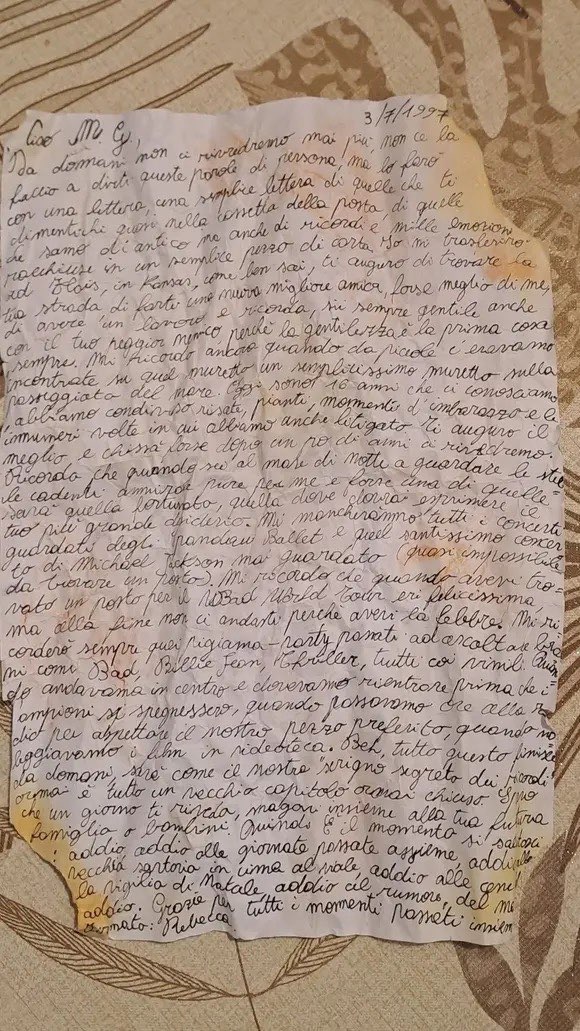 Ciao M. G,
3/7/1997
Da domani non ci rivedremo mai più non ce la
faccio a dirti queste parole di persona, ma lo farò
con una lettera, una semplice lettera di quelle che ti
dimentichi quasi nella cassetta della posta, di quelle
che sanno di antico ma anche di ricordi e mille emozioni
racchiuse in un semplice pezzo di carta. Io mi trasferirò
ad in Kansas, come ben sai, ti auguro di trovare la
tua strada, di farti una nuova migliore amica, forse meglio di me,
di avere un lavoro e ricorda, sii sempre gentile anche
con il tuo peggior nemico perchè la gentilezza è la prima cosa
sempre. Mi ricordo ancora quando da picole c'eravamo
incontrate su quel muretto un semplicissimo muretto sulla
passeggiata del mare. Oggi sono 16 anni che ci conosciamo
abbiamo condiviso risate, pianti, momenti d'imbarazzo e le
innumeri volte in cui abbiamo anche litigato ti auguro il
meglio, e chissà forse dopo un pò di anni ci rivedremo.
Ricorda che quando sei al mare di notte a guardare le stel=
le cadenti ammirale pure per me e forse una di quelle
sarà quella fortunata, quella dove dovrai esprimere il
tuo più grande desiderio. Mi mancheranno tutti i concerti
guardati degli Spandau Ballet e quel santissimo concer
to di Michael Jackson mai guardato (quasi impossibile
da trovare un posto). Mi ricordo che quando avevi tro=
vato un posto per il Bad World Tour eri felicissima,
ma alla fine non ci andasti perchè avevi la febbre. Mi ri
corderò sempre quei pigiama-party passati ad ascoltare
ni come Bad, Billie Jean, Thriller, tutti coi vinili. Quan
do andavamo in centro e dovevamo rientrare prima che i
ampioni si spegnessero, quando passavamo ore alla
dio per aspettare il nostro pezzo preferito, quando no
leggiavamo i film in videoteca. Beh, tutto questo finisce
da domani, sarà come il nostro "scrigno segreto dei ricordi"
ormai è tutto un vecchio capitolo ormai chiuso. Spero
che un giorno ti riveda, magari insieme alla tua futura
famiglia o bambini. Quindi È il momento si
: addio addio alle giornate passate assieme, addio
vecchia sartoria in cima al viale, addio alle
la vigilia di Natale, addio al rumore del
addio. Grazie per tutti i momenti passati insiem
Rebecca